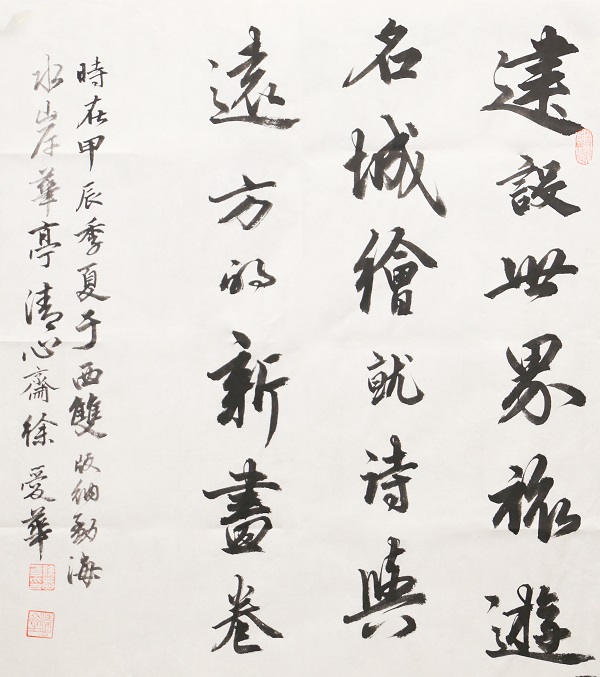 建設世界旅遊
名城繪就詩與
遠方的新畫卷
時在甲辰季夏于西雙版納勐海
水岸華亭清心齋徐愛華